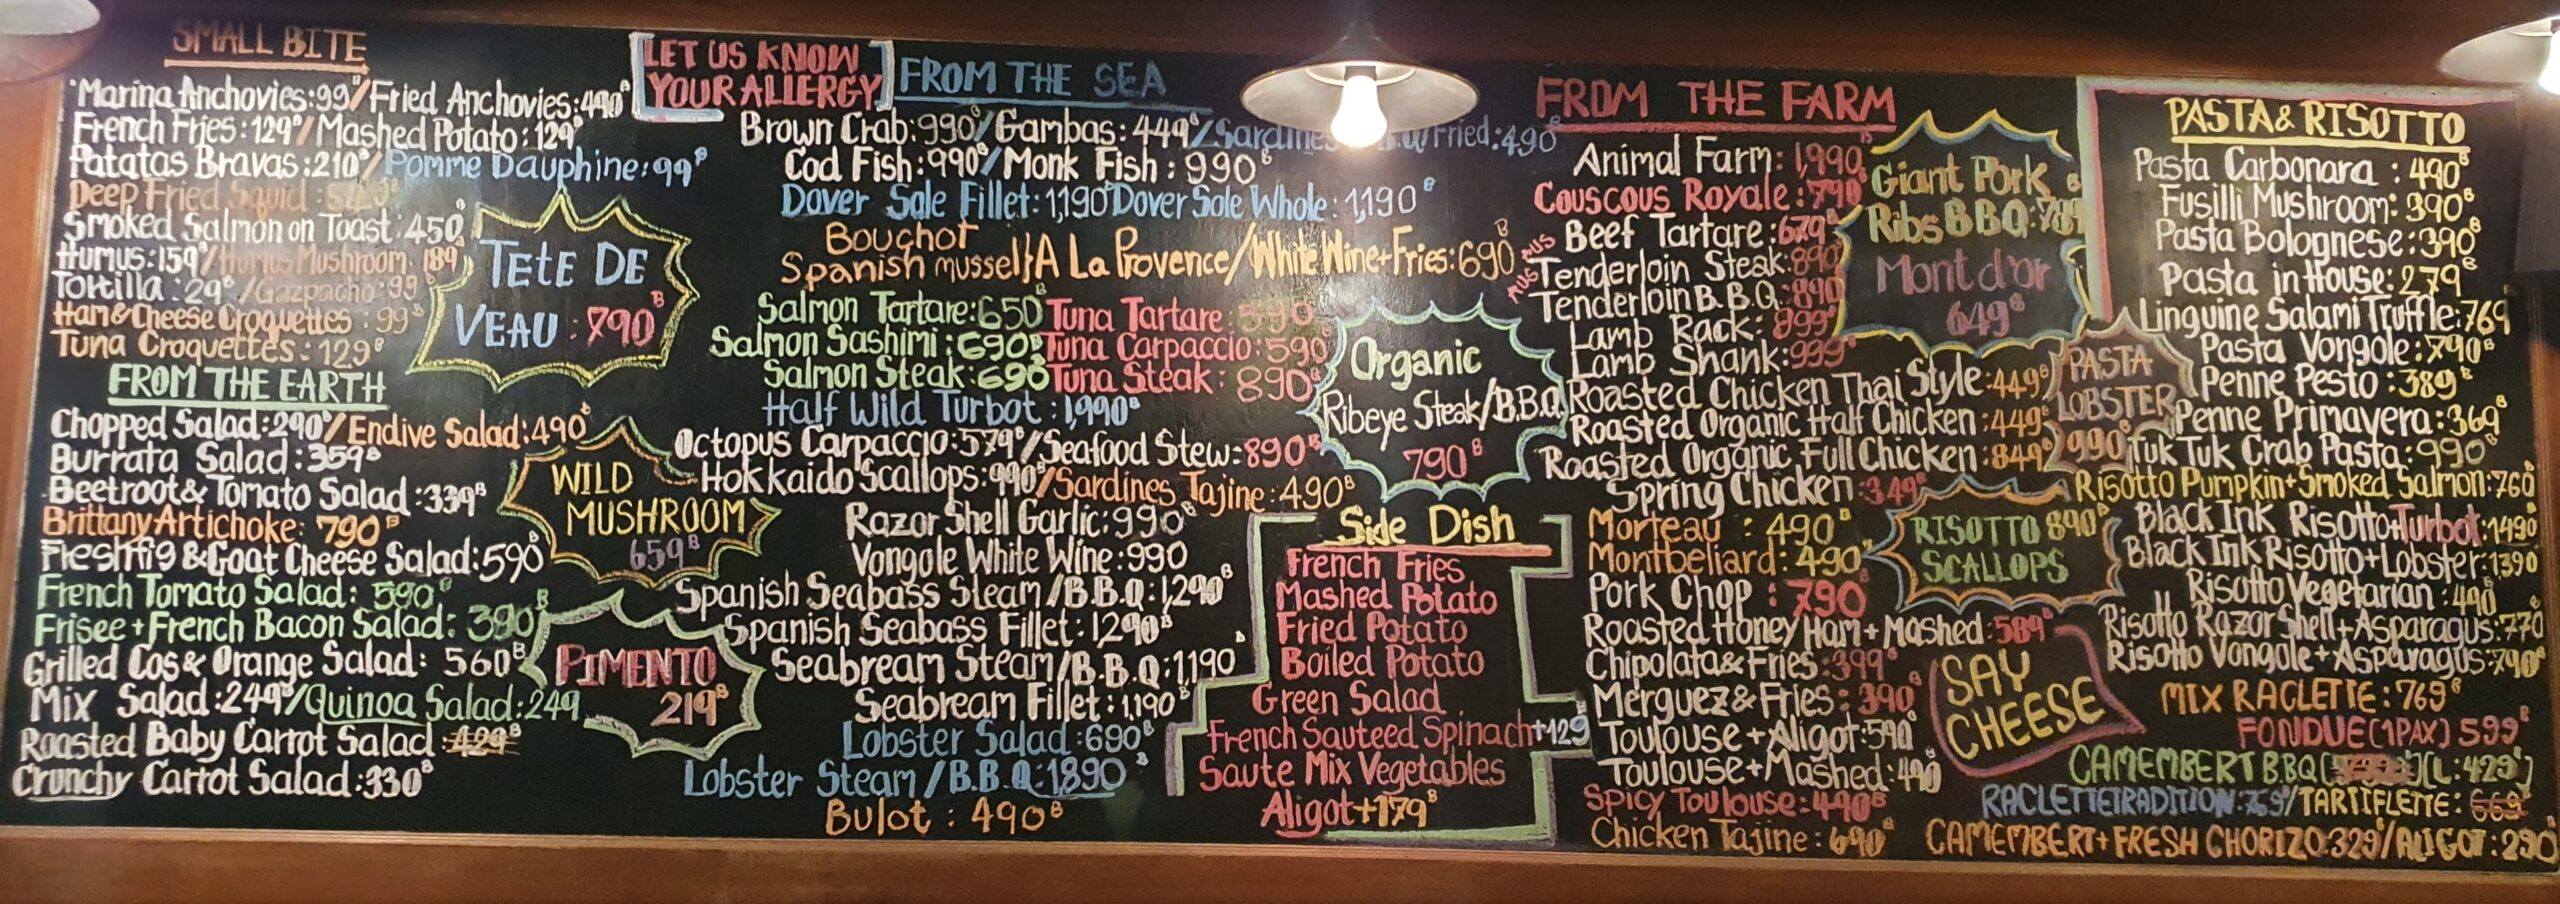 SMALL BITE
Marina Anchovies:99/Fried Anchovies:490฿
French Fries:129฿/Mashed Potato:129฿
Patatas Bravas:210฿/Pomme Dauphine:99฿
Deep Fried Squid:
Smoked Salmon on Toast:450
Humus:159฿/Humus Mushroom.189
Tortilla:29฿/Gazpacho:99฿
Ham&Cheese Croquettes:99฿
Tuna Croquettes:129฿
TETE DE
VEAU:790฿
FROM THE EARTH
Chopped Salad:290฿/Endive Salad:490฿
Burrata Salad:359฿
Beetroot&Tomato Salad:339฿
Brittany Artichoke:790฿
Freshfig&Goat Cheese Salad:590฿
French Tomato Salad:590฿
Frisee+French Bacon Salad:390฿
Grilled Cos&Orange Salad:560฿
Mix Salad:249฿/Quinoa Salad:249
Roasted Baby Carrot Salad:429฿
Crunchy Carrot Salad:330฿
WILD
MUSHROOM
659฿
PIMENTO
219฿
LET US KNOW
YOUR ALLERGY
FROM THE SEA
Brown Crab:990฿/Gambas:449฿/Sardines /Fried:490฿
Cod Fish:990฿/Monk Fish:990฿
Dover Sole Fillet:1,190฿Dover Sole Whole:1,190฿
Bouchot
Spanish mussel}A La Provence/White Wine+Fries:690฿
Salmon Tartare:650฿ Tuna Tartare:590
Salmon Sashimi:690฿ Tuna Carpaccio:590฿
Salmon Steak:690฿ Tuna Steak:890฿
Half Wild Turbot:1,990฿
Octopus Carpaccio:579฿/Seafood Stew:890฿
Hokkaido Scallops:990฿/Sardines Tajine:490฿
Razor Shell Garlic:990฿
Vongole White Wine:990
Spanish Seabass Steam/B.B.Q:1,290฿
Spanish Seabass Fillet:1290฿
Seabream Steam/B.B.Q:1,190฿
Seabream Fillet:1,190฿
Lobster Salad:690฿
Lobster Steam/B.B.Q:1890฿
Bulot:490฿
Organic
Ribeye Steak/B.B.Q
790฿
Side Dish
French Fries
Mashed Potato
Fried Potato
Boiled Potato
Green Salad
French Sauteed Spinach+129฿
Saute Mix Vegetables
Aligot+179฿
FROM THE FARM
Animal Farm:1,990฿
Couscous Royale:790฿
Beef Tartare:679฿
AUS Tenderloin Steak:890
AUS Tenderloin B.B.Q:890
Lamb Rack:899฿
Lamb Shank:999฿
Roasted Chicken Thai Style:449฿
Roasted Organic Half Chicken:449฿
Roasted Organic Full Chicken:849฿
Spring Chicken:349฿
Morteau:490฿
Montbeliard:490฿
Pork Chop:790฿
Roasted Honey Ham+Mashed:589฿
Chipolata&Fries:399฿
Merguez&Fries:390฿
Toulouse+Aligot:590฿
Toulouse+Mashed:490
Spicy Toulouse:490฿
Chicken Tajine:690฿
Giant Pork
Ribs BBQ:789฿
Mont d'or
649฿
PASTA
LOBSTER
990฿
RISOTTO 890฿
SCALLOPS
SAY
CHEESE
PASTA&RISOTTO
Pasta Carbonara:490฿
Fusilli Mushroom:390฿
Pasta Bolognese:390฿
Pasta in House:279฿
Linguine Salami Truffle:769
Pasta Vongole:790฿
Penne Pesto:389฿
Penne Primavera:369฿
Tuk Tuk Crab Pasta:990฿
Risotto Pumpkin+Smoked Salmon:760฿
Black Ink Risotto+Turbot:1490฿
Black Ink Risotto+Lobster:1390
Risotto Vegetarian:490฿
Risotto Razor Shell+Asparagus:770฿
Risotto Vongole+Asparagus:790฿
MIX RACLETTE:769฿
FONDUE(1PAX)599฿
CAMEMBERT B.B.Q [L:429฿]
RACLETTETRADITION:769฿/TARTIFLETTE:669฿
CAMEMBERT+FRESH CHORIZO:329฿/ALIGOT:290฿